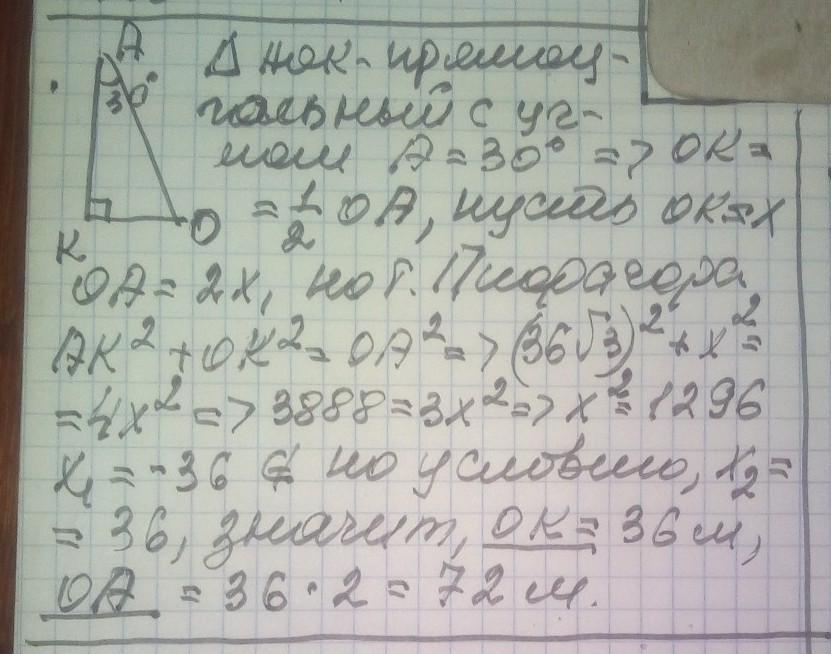 A
30°
K
O
Δ АОК - прямоу-
гольный с уг-
лом А = 30° => ОК =
= 1/2 ОА, пусть ОК = x
ОА = 2x, по т. Пифагора
АК² + ОК² = ОА² => (36√3)² + x² =
= 4x² => 3888 = 3x² => x² = 1296
x₁ = -36 ∉ по условию, x₂ =
= 36, значит, ОК = 36 м,
ОА = 36 · 2 = 72 м.